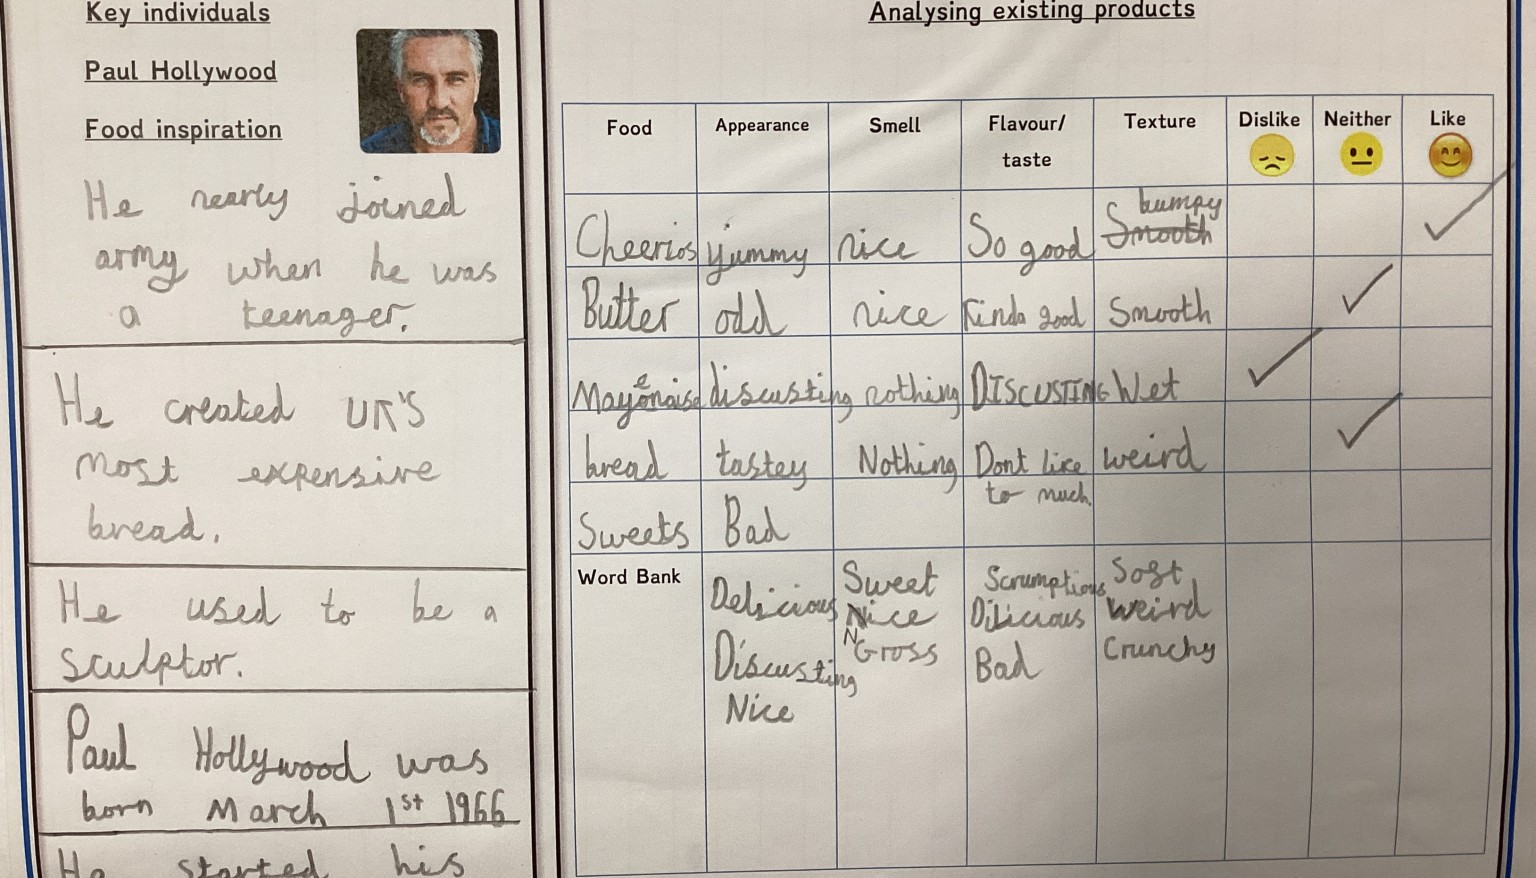 Key individuals
Paul Hollywood
Food inspiration
He nearly joined
army when he was
a teenager.
He created UK'S
most expensive
bread.
He used to be a
sculptor.
Paul Hollywood was
born March 1st 1966
He started his
Analysing existing products
Food Appearance Smell Flavour/ taste Texture Dislike Neither Like
Cheerios yummy nice So good Smooth bumpy
Butter odd nice Kinda good Smooth
Mayonaise discusting nothing DISCUSTING Wet
bread tastey Nothing Dont like to much. weird
Sweets Bad
Word Bank
Delicious Sweet Scrumptious Soft
Nice Dilicious Weird
Discusting N Gross Bad Crunchy
Nice